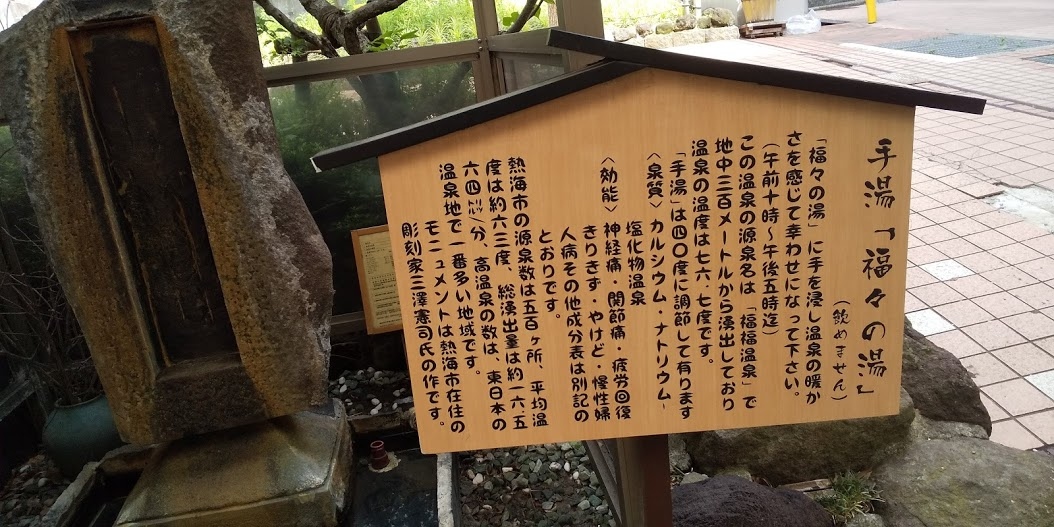 手湯「福々の湯」
（飲めません）
「福々の湯」に手を浸し温泉の暖か
さを感じて幸わせになって下さい。
（午前十時～午後五時迄）
この温泉の源泉名は、「福福温泉」で
地中三百メートルから湧出しており
温泉の温度は七六、七度です。
「手湯」は四〇度に調節して有ります
〈泉質〉カルシウム・ナトリウム-
塩化物温泉
〈効能〉神経痛・関節痛・疲労回復
きりきず・やけど・慢性婦
人病その他成分表は別記の
とおりです。
熱海市の源泉数は五百ヶ所、平均温
度は約六三度、総湧出量は約一六五
六四㍑／分、高温泉の数は、東日本の
温泉地で一番多い地域です。
モニュメントは熱海市在住の
彫刻家三澤憲司氏の作です。